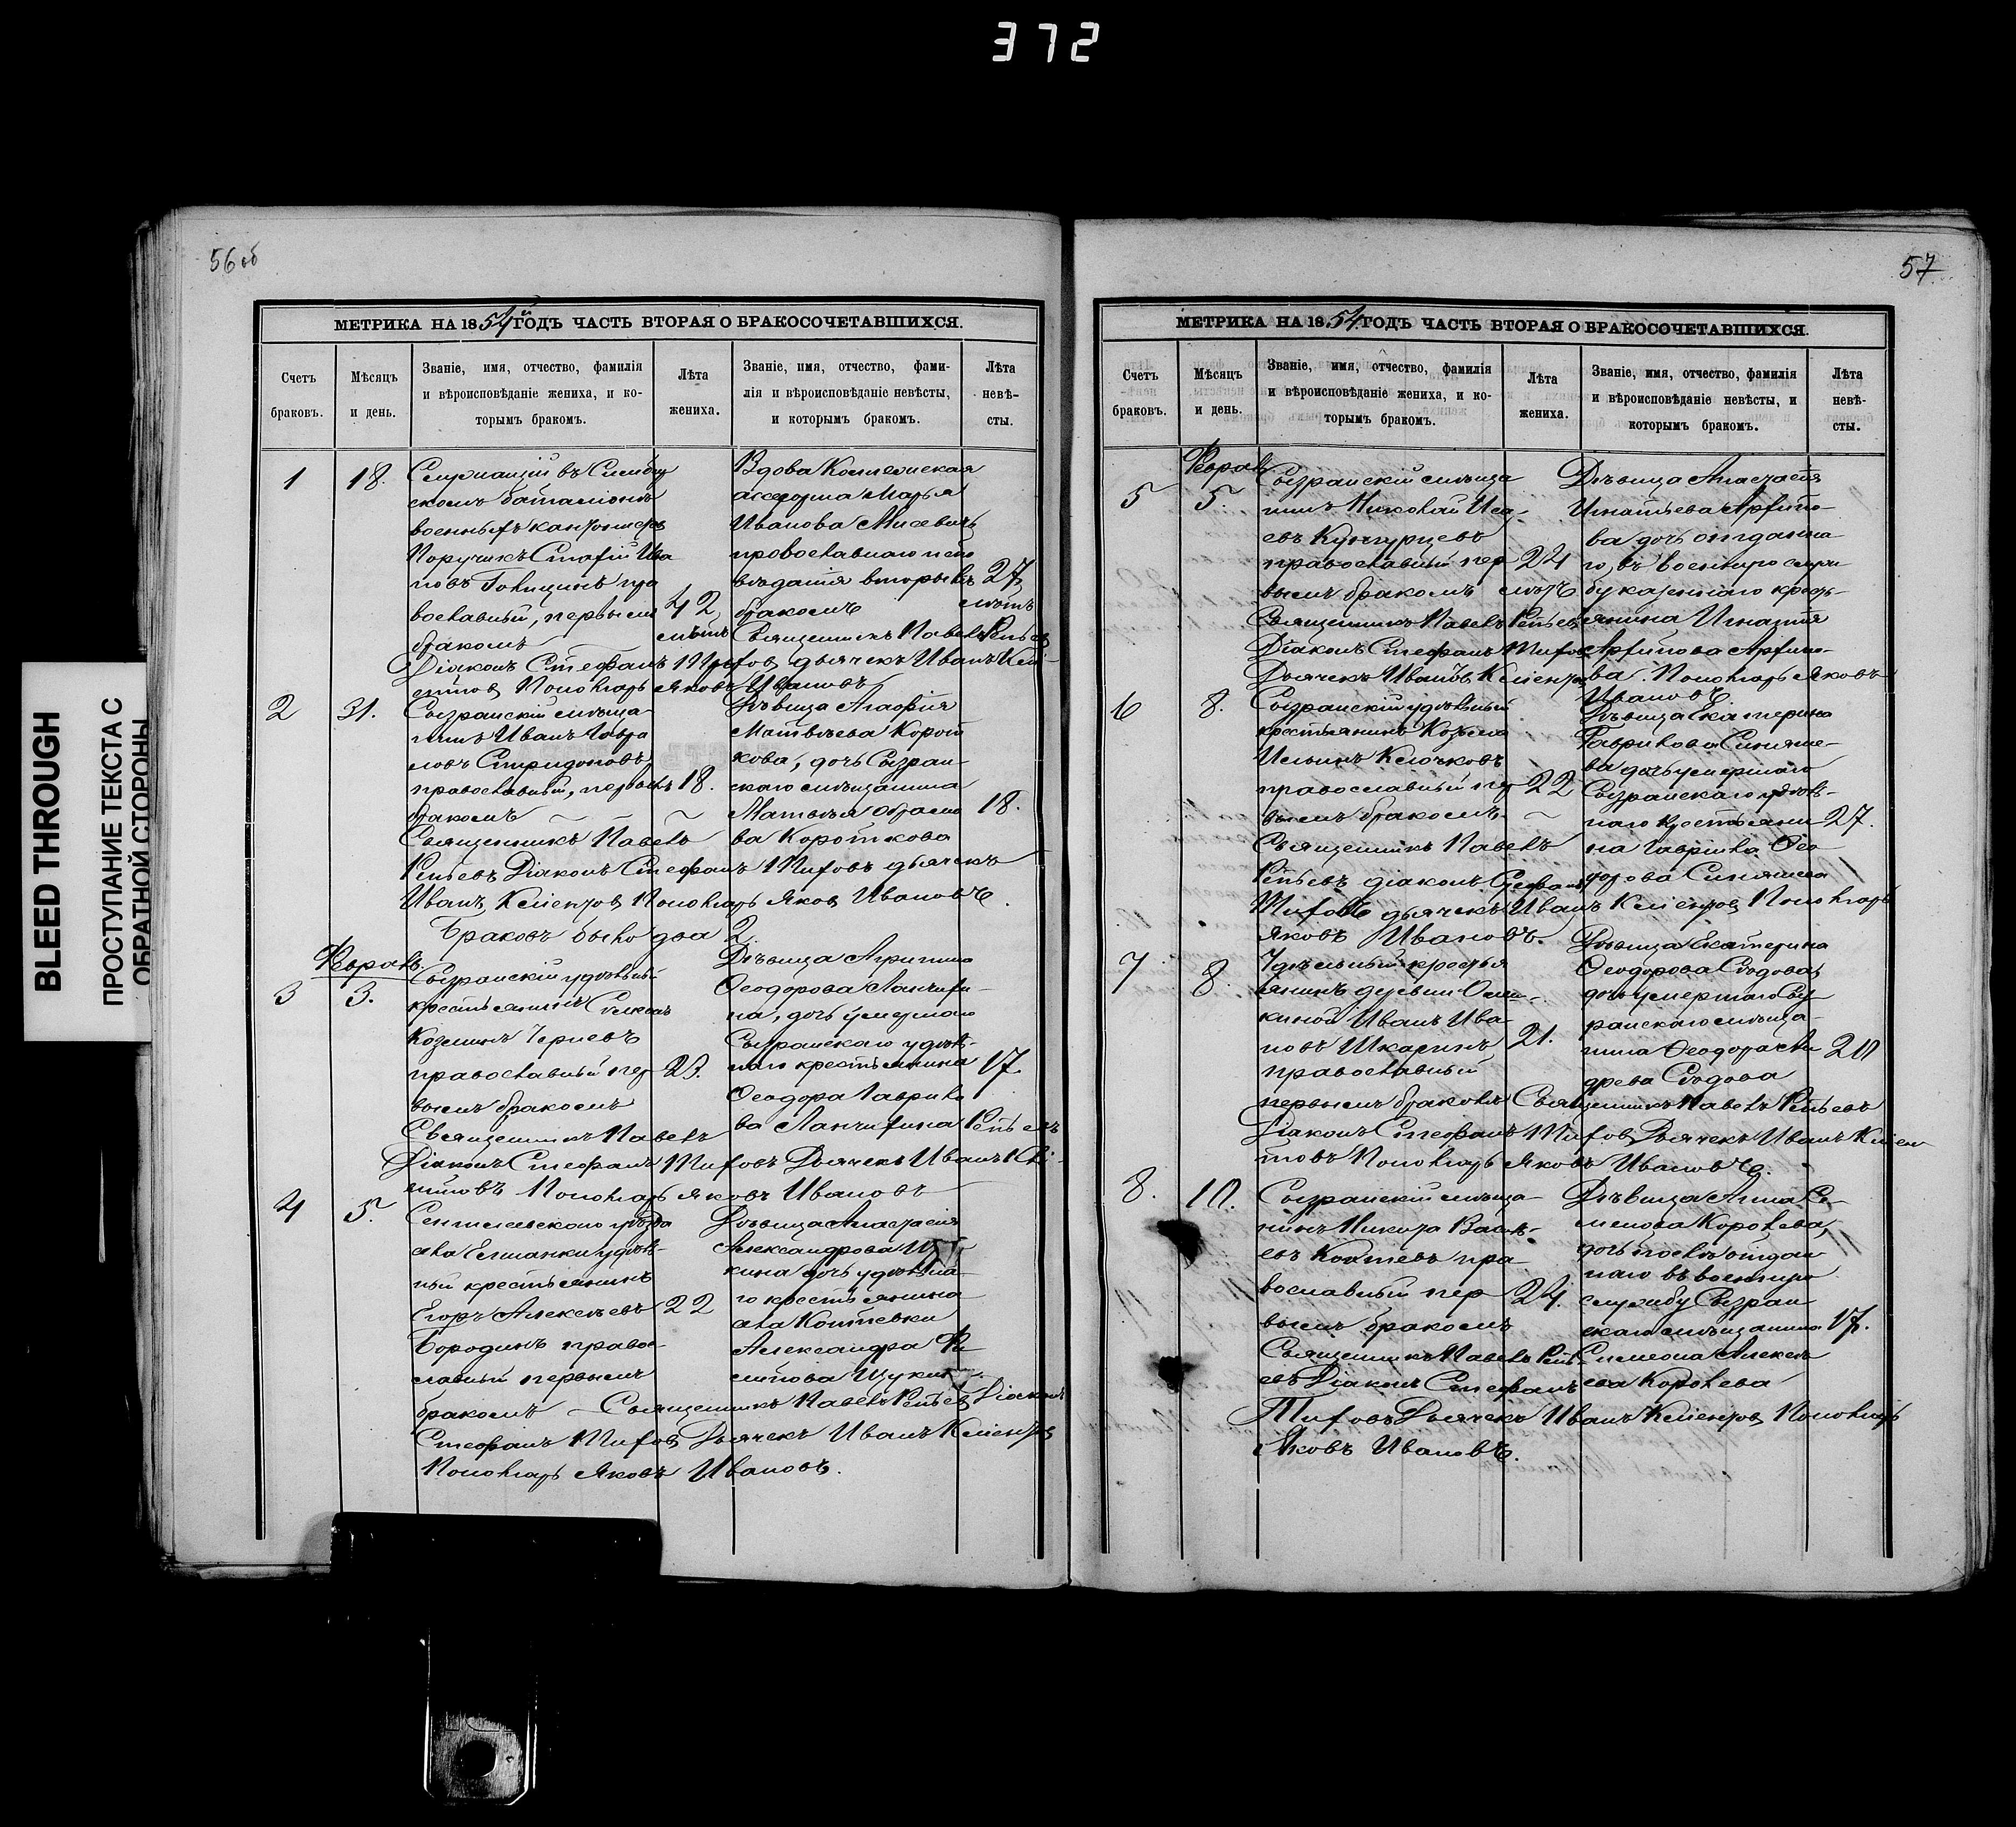 372
BLEED THROUGH
ПРОСТУПАНИЕ ТЕКСТА С
ОБРАТНОЙ СТОРОНЫ
56 об
МЕТРИКА НА 1854й ГОДЪ ЧАСТЬ ВТОРАЯ О БРАКОСОЧЕТАВШИХСЯ.
Счетъ браковъ.
Мѣсяцъ и день.
Званіе, имя, отчество, фамилія
и вѣроисповѣданіе жениха, и ко-
торымъ бракомъ.
Лѣта жениха.
Званіе, имя, отчество, фами-
лія и вѣроисповѣданіе невѣсты,
и которымъ бракомъ.
Лѣта невѣ-
сты.
1
18.
Служащій въ Симбир
скомъ баталіонѣ
военныхъ кантонистовъ
Поручикъ Ива
новъ пра
вославный, первымъ
бракомъ
42
лѣтъ
Вдова
Марья
Иванова
православнаго испо
вѣданія вторымъ
бракомъ
27
лѣтъ
Священникъ Павелъ Репьев
Діаконъ Стефанъ Тифов дьячекъ Иванъ Клі-
ентов Пономарь Яковъ Ивановъ
2
31.
Сызранскій мѣща-
нинъ Иванъ Гавра
ловъ Спиридоновъ,
православный, первымъ
бракомъ
18.
Дѣвица Агафия
Матвѣева Корот
кова, дочь Сызран-
скаго мѣщанина
Матвѣя
ва Короткова
18.
Священникъ Павелъ
Репьевъ Діаконъ Стефанъ Тифовъ дьячекъ
Иванъ Кліентов Пономарь Яков Ивановъ.
Браковъ было два 2.
Феврал.
3
3.
Сызранскій удѣльный
крестьянинъ
Козминъ
православный пер
вымъ бракомъ
23.
Дѣвица Агрипина
Ѳеодорова
на, дочь умершаго
Сызранскаго удѣль-
наго крестьянина
Ѳеодора Гаврило
ва
17.
Священникъ Павелъ Репьевъ
Діаконъ Стефанъ Тифовъ Дьячекъ Иванъ Клі-
ентовъ Пономарь Яковъ Ивановъ
4
5.
Сенгилеевскаго уѣзда
села Елшанки удѣль-
ный крестьянинъ
Егоръ Алексѣевъ
Бородинъ правос-
лавный первымъ
бракомъ
22
Дѣвица Анастасія
Александрова Щу
кина дочь удѣльна
го крестьянина
села
Александра Фи
липова Щукина
Священникъ Павелъ Репьев Діаконъ
Стефанъ Тифов Дьячекъ Иванъ Кліентов
Пономарь Яковъ Ивановъ.
57.
МЕТРИКА НА 1854. ГОДЪ ЧАСТЬ ВТОРАЯ О БРАКОСОЧЕТАВШИХСЯ.
Счетъ браковъ.
Мѣсяцъ и день.
Званіе, имя, отчество, фамилія
и вѣроисповѣданіе жениха, и ко-
торымъ бракомъ.
Лѣта жениха.
Званіе, имя, отчество, фамилія
и вѣроисповѣданіе невѣсты, и
которымъ бракомъ.
Лѣта невѣ-
сты.
Феврал.
5
5.
Сызранскій мѣща
нинъ Николай Иса-
евъ Кунгурцевъ
православный пер
вымъ бракомъ
24
лѣтъ
Дѣвица Анастасія
Игнатьева
ва дочь отданна
го, въ военную служ
бу казеннаго кресть-
янина Игнатія
Священникъ Павелъ Репьев
Діаконъ Стефанъ Тифов
Дьячекъ Иванъ Кліентов Пономарь Яковъ
Ивановъ.
6
8.
Сызранскій удѣльный
крестьянинъ Козьма
Ильинъ Клочковъ
православный пер
вымъ бракомъ
22
Дѣвица Екатерина
Гаврилова Синяше-
ва дочь умершаго
Сызранскаго удѣль-
наго крестьяни
на Гаврила Ѳео
дорова Синяшева
27.
Священникъ Павелъ
Репьевъ діаконъ Стефанъ
Тифовъ дьячекъ Иванъ Кліентов Пономарь
Яковъ Ивановъ.
7
8.
Удѣльный кресть
янинъ деревни
Иванъ Ива
новъ Шкаринъ
православный
первымъ бракомъ
21.
Дѣвица Екатерина
Ѳеодорова Сѣдова,
дочь умершаго Сыз
ранскаго мѣща-
нина Ѳеодора Ан
древа Сѣдова
20
Священникъ Павелъ Репьевъ
Діаконъ Стефанъ Тифов Дьячекъ Иванъ Клиен
товъ Пономарь Яковъ Ивановъ.
8.
10.
Сызранскій мѣща-
нинъ Никита Василь-
евъ пра-
вославный пер
вымъ бракомъ
24.
Дѣвица Анна Се-
менова Королева,
дочь отдан
наго въ военную
службу Сызран
скаго мѣщанина
Симеона Алексѣ
ева Королева
17.
Священникъ Павелъ Репь
евъ Діаконъ Стефанъ
Тифовъ Дьячекъ Иванъ Кліентов Пономарь
Яковъ Ивановъ.